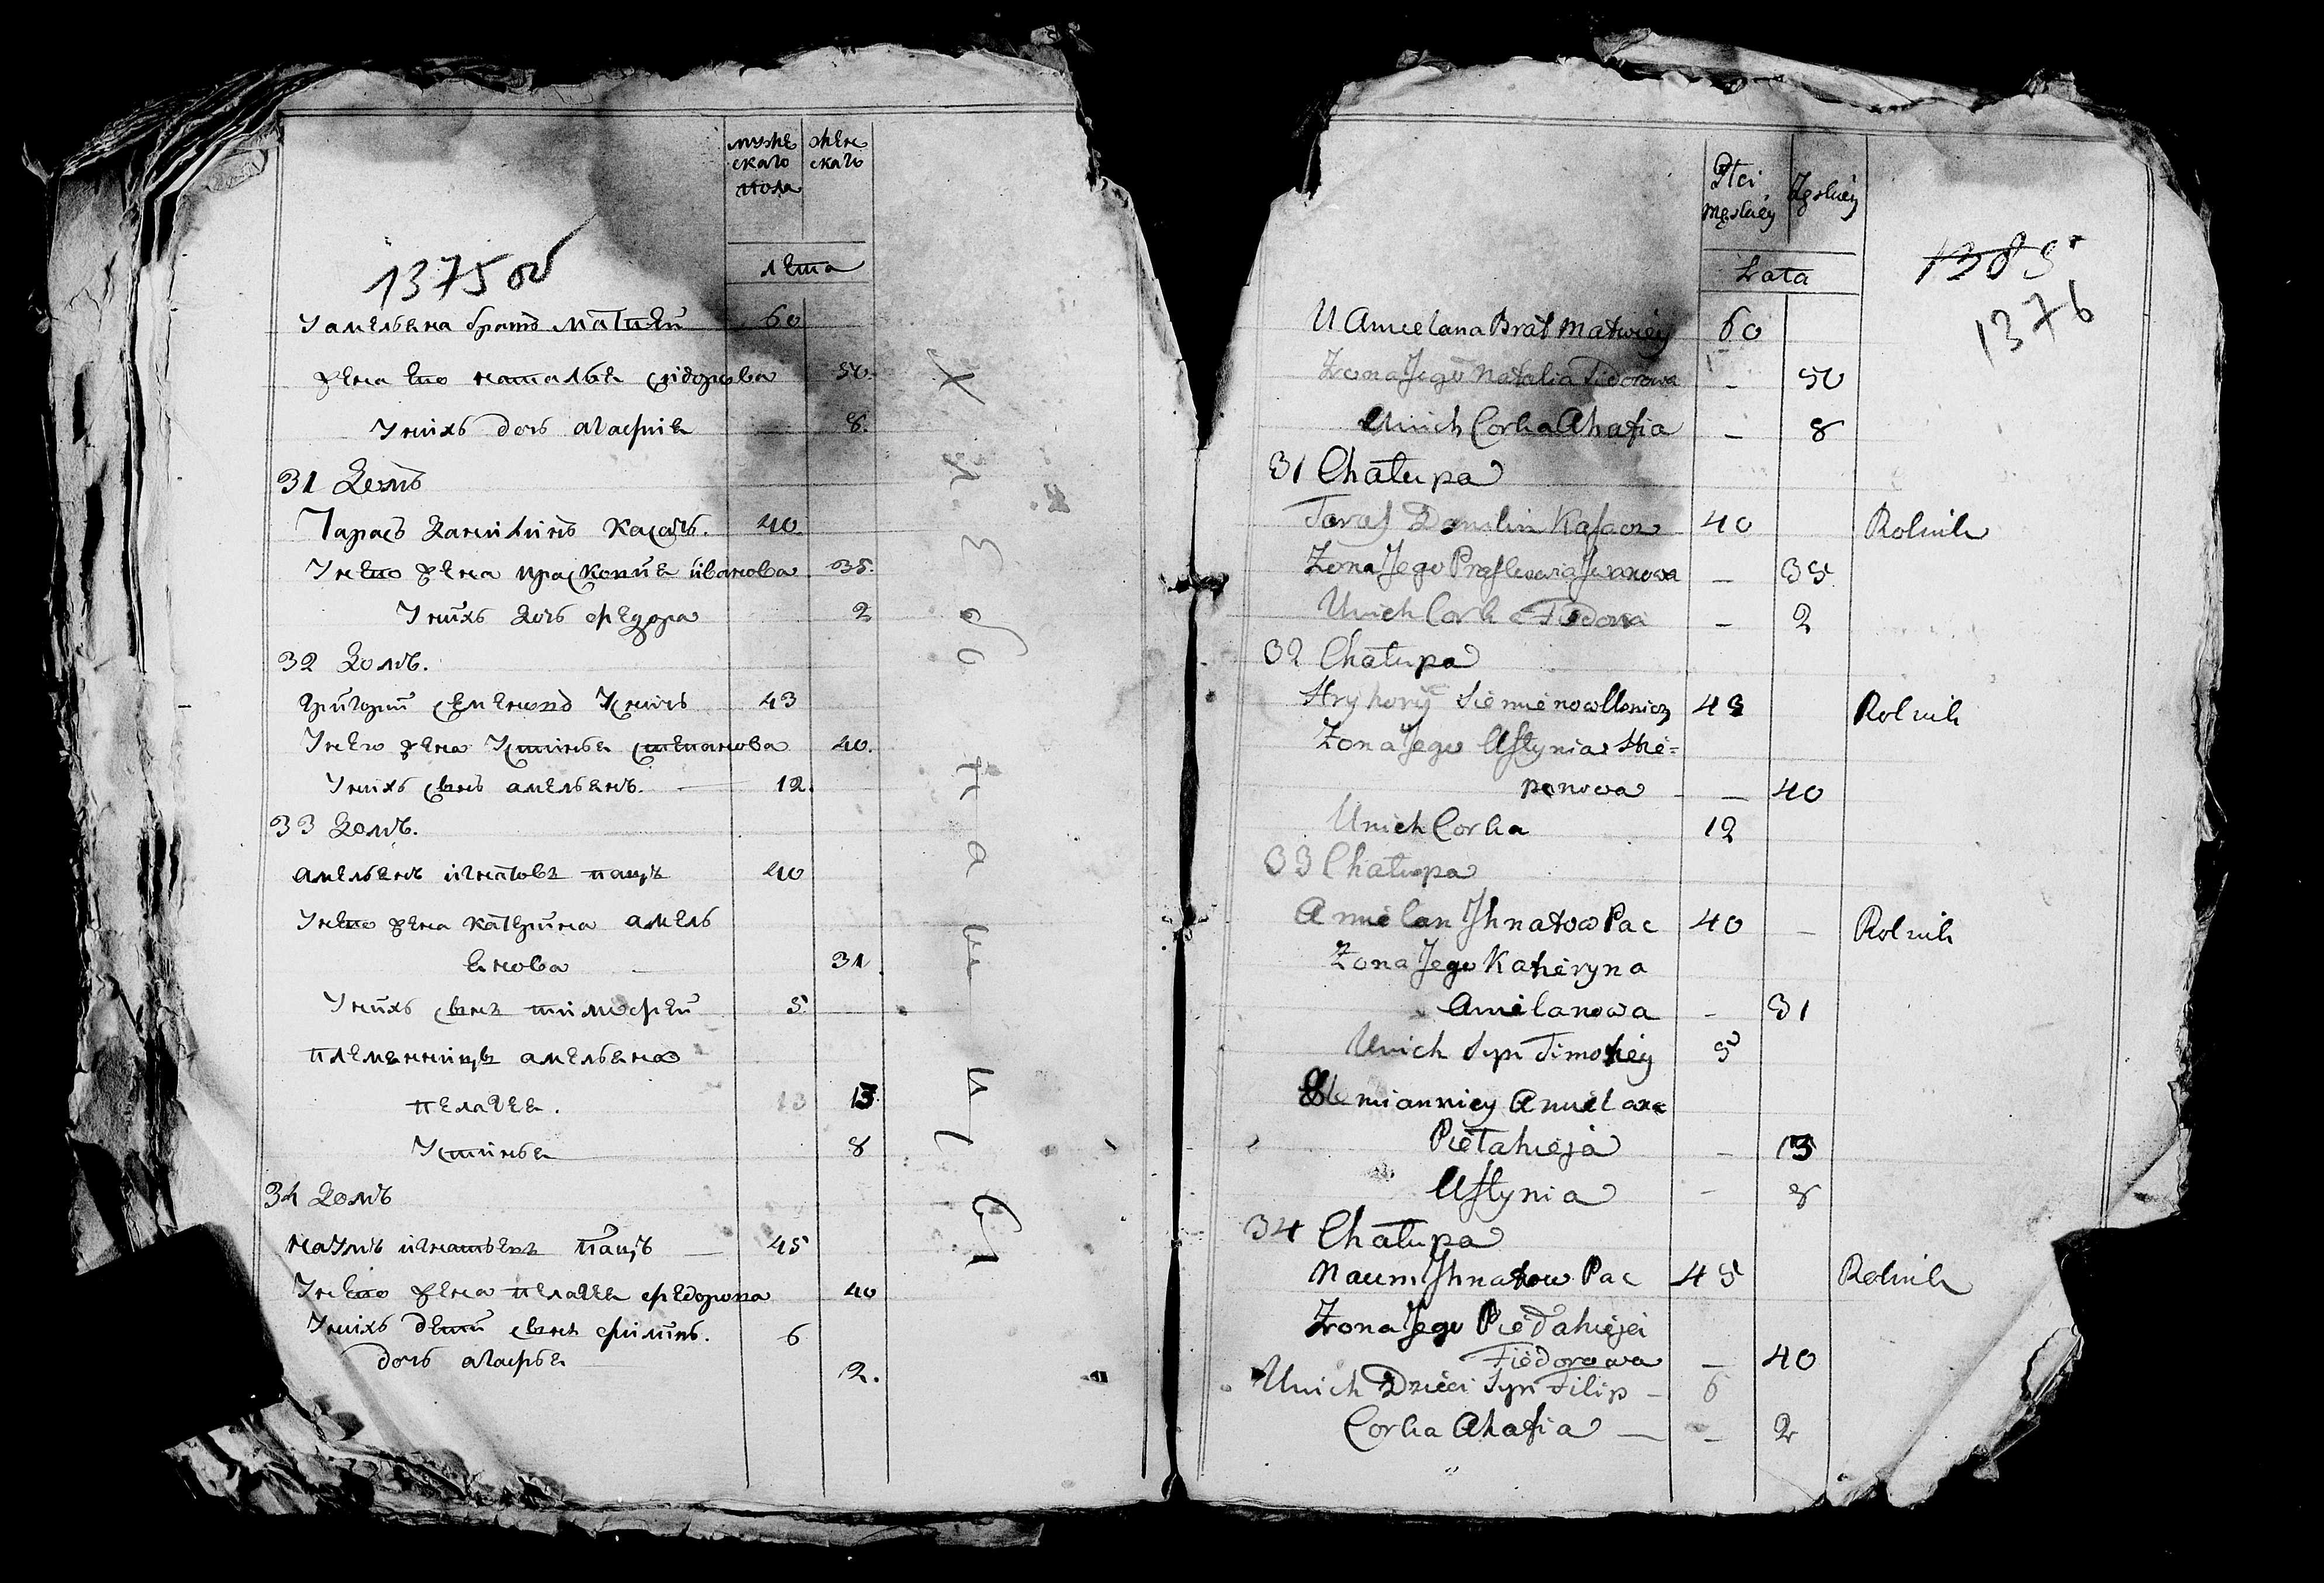 мужескаго пола
женскаго
лета
1375 об
У амельяна братъ матвей 60
жена его наталья сидорова 50.
У нихъ дочь агафия 8.
31 Домъ
Тарасъ Данилинъ Касачъ. 40.
У него жена прасковия иванова 35.
У нихъ дочь федора 2
32 Домъ.
григорий семеновъ 43
У него жена Устинья степанова 40.
У нихъ сынъ амельянъ. 12.
33 Домъ.
амельянъ игнатовъ пацъ 40
У него жена катерина амель
янова 31
У нихъ сынъ тимофей 5
племянницы амельяна
пелагея. 13 13.
Устинья 8
34 Домъ
наумъ игнатьевъ пацъ 45
У него жена пелагея федорова 40
У нихъ дети сынъ филипъ. 6
дочь агафья 2.
Płci męskiéy
Żęskiéy
Lata
1385
1376
U Amielana Brat Matwiéy 60
Żona Jego Natalia Sidorowa - 50
U nich Corka Ahafia - 8
31 Chałupa
Taras Danilin Kasacz 40 Rolnik
Żona Jego Praskowia Jwanowa - 35
U nich Corka Fiedora - 2
32 Chałupa
Hryhory Siemienow 43 Rolnik
Żona Jego Ustynia Stie=
panowa - - 40
U nich Corka 12
33 Chałupa
Amielan Jhnatow Pac 40 - Rolnik
Żona Jego Katieryna
Amielanowa - 31
U nich Syn Timofiéy 5
Plemiannicy Amielana
Pietahieja - 13
Ustynia - 8
34 Chałupa
Naum Jhnatow Pac 45 Rolnik
Żona Jego Piełahieja
Fiedorowa - 40
U nich Dzieci Syn Filip - 6
Corka Ahafia - - 2